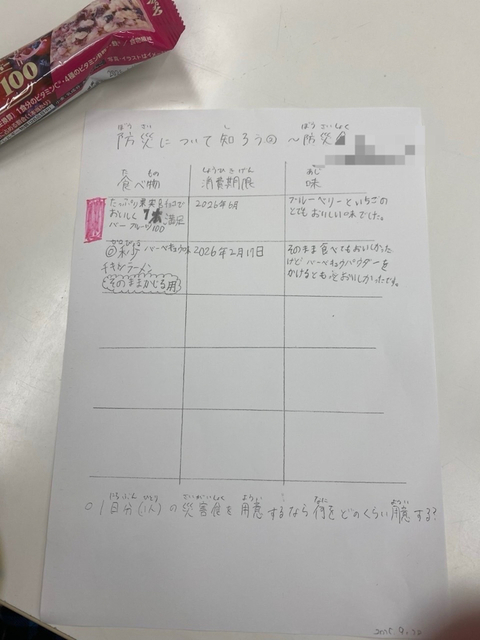 100
1食分のビタミンC・4種のビタミン
防災について知ろうの ～防災
ぼう さい し ぼう さいしょく
食べ物 消費期限 味
た もの しょうひ きげん あじ
たっぷり果実 2026年6月 ブルーベリーといちごの
おいしく 満足 とてもおいしい味でした。
バー フルーツ100
バーベキュー味 2026年2月17日 そのまま食べてもおいしかった
チキンラーメン けどバーベキューパウダーを
そのままかじる用 かけるともっとおいしかったです。
いちにちぶん ひとり さいがいしょく ようい なに ようい
○1日分(1人)の災害食を用意するなら何をどのくらい用意する?